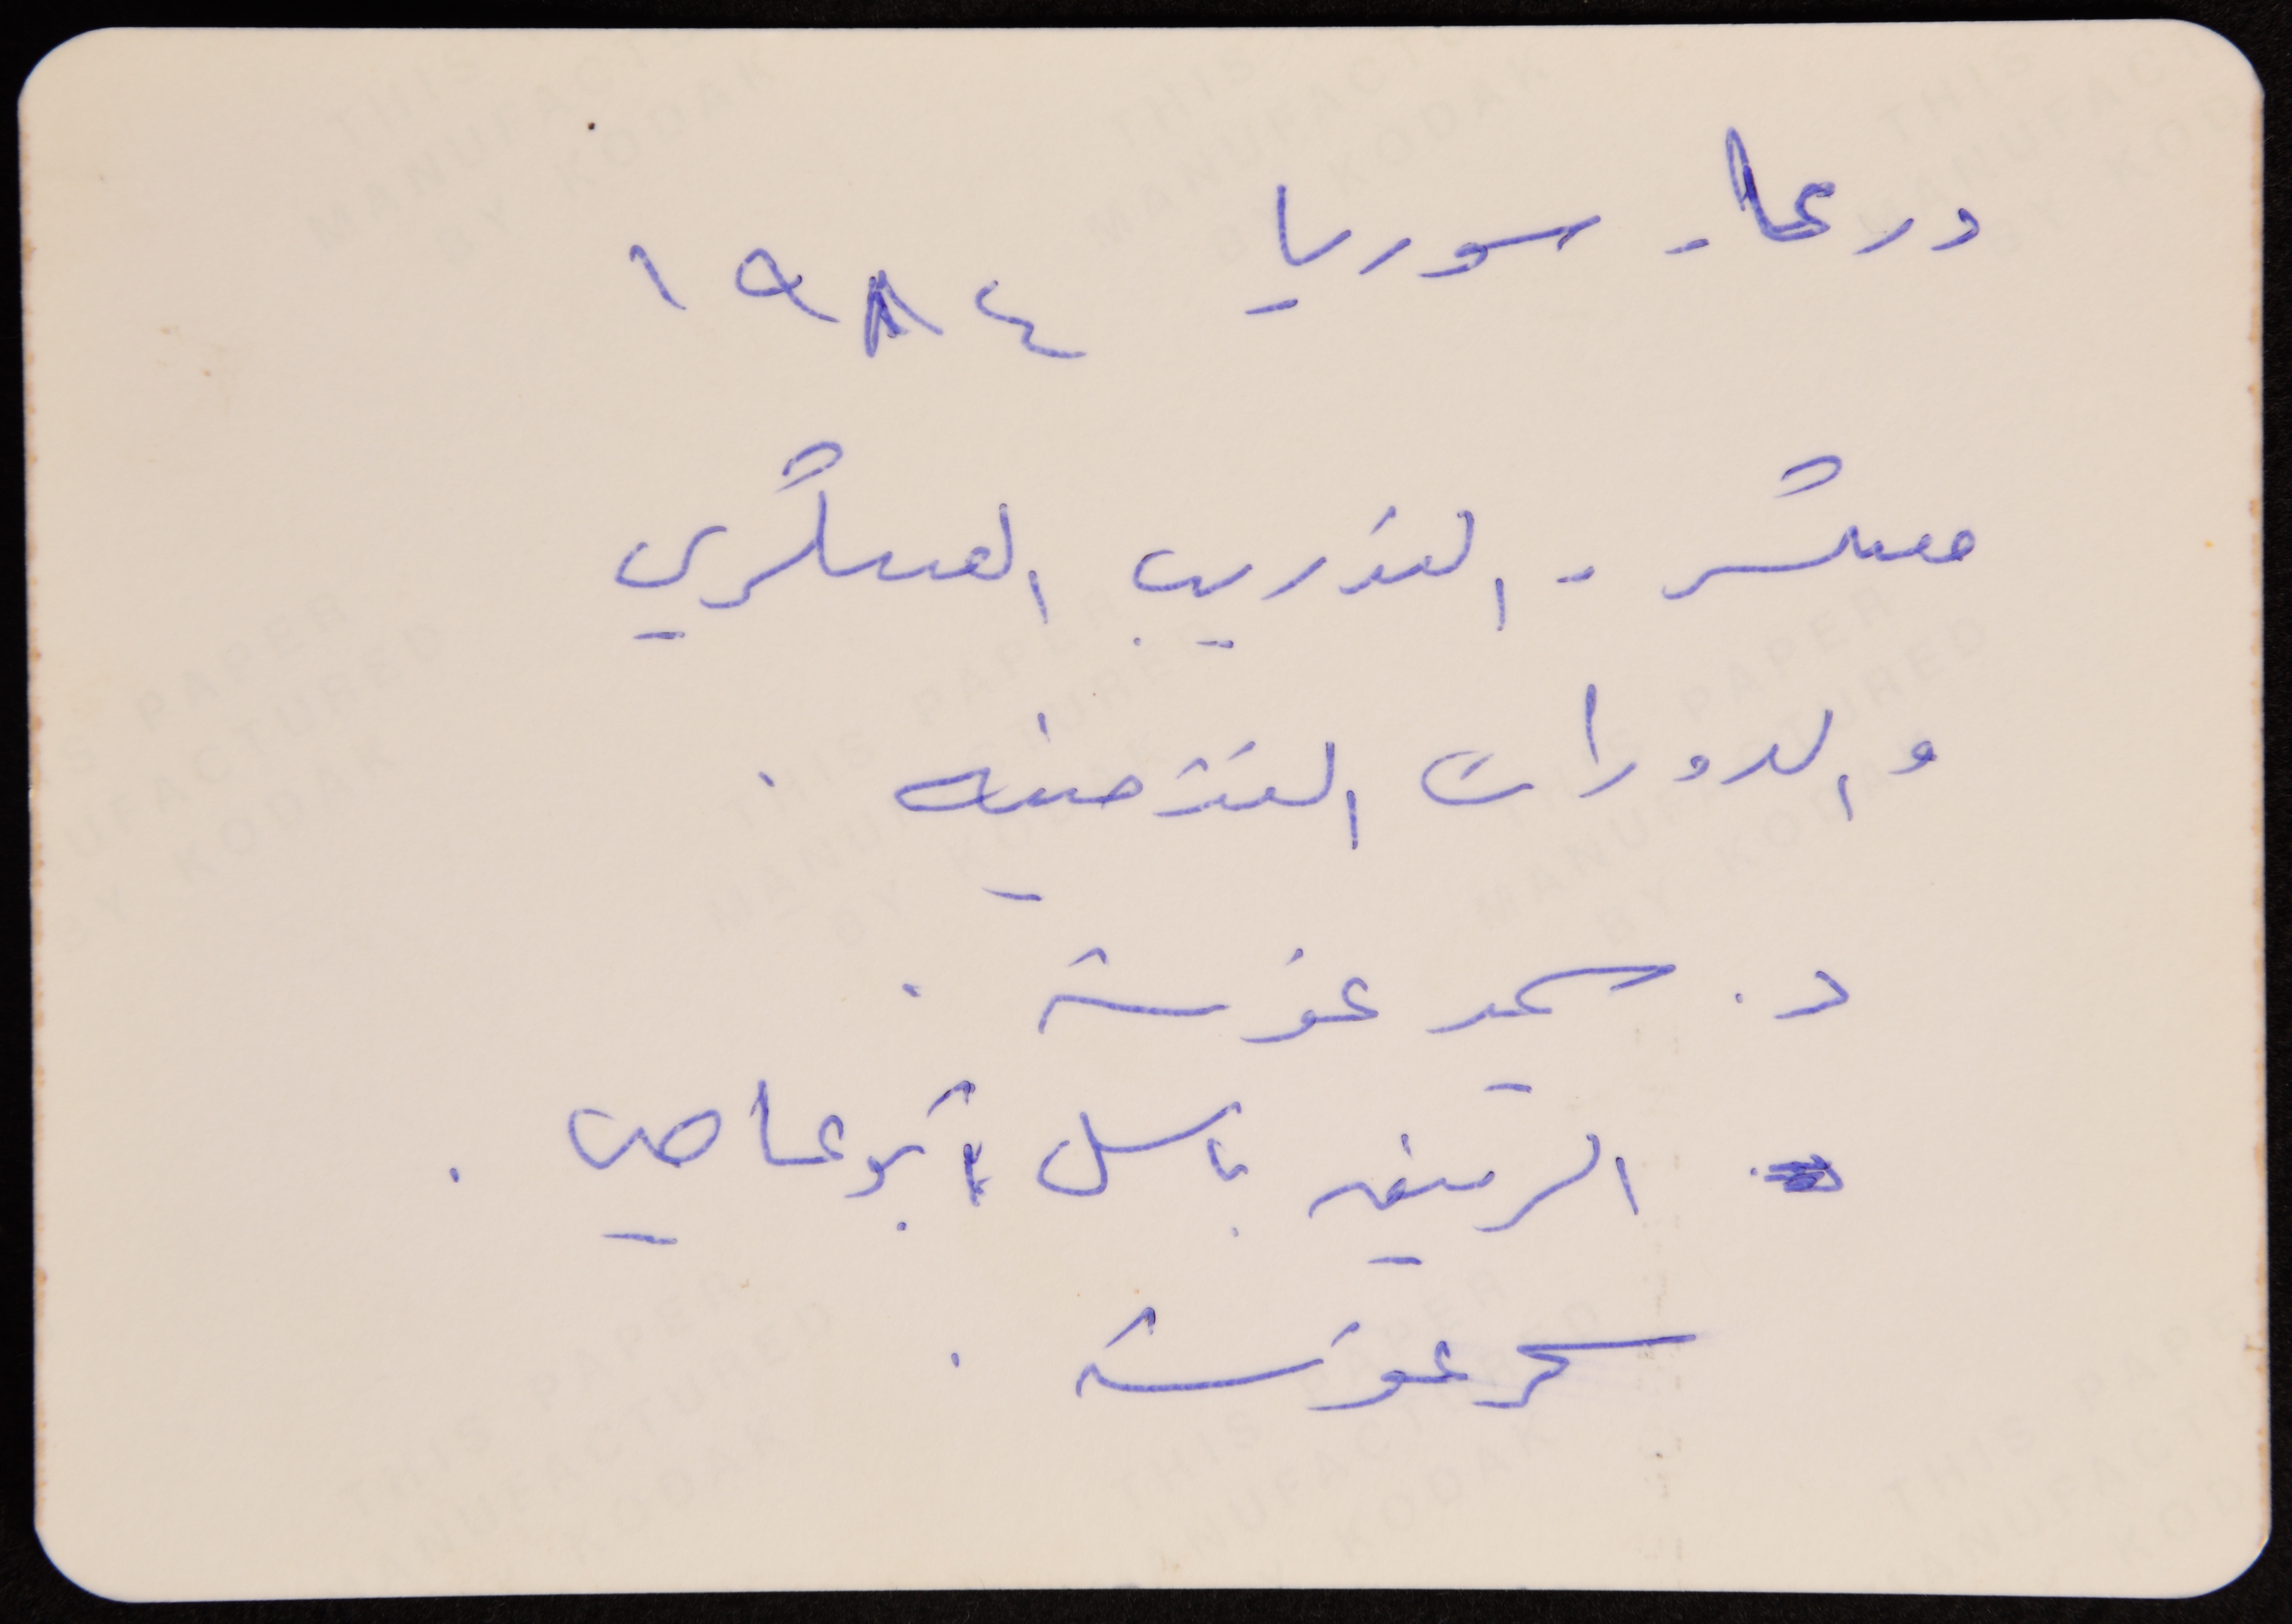 درعا - سوريا ١٩٨٤
معسكر - التدريب العسكري
والدورات التثقيفية .
د. سمير غوشة .
الرفيق باسل أبو عاصي .
سحر غوشة .
THIS PAPER
MANUFACTURED
BY KODAK